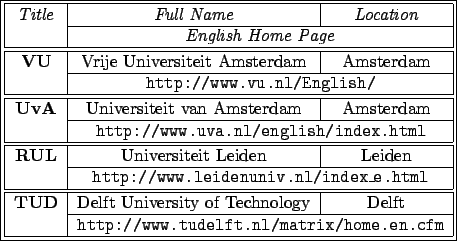 Title Full Name Location
English Home Page
VU Vrije Universiteit Amsterdam Amsterdam
http://www.vu.nl/English/
UvA Universiteit van Amsterdam Amsterdam
http://www.uva.nl/english/index.html
RUL Universiteit Leiden Leiden
http://www.leidenuniv.nl/index_e.html
TUD Delft University of Technology Delft
http://www.tudelft.nl/matrix/home.en.cfm